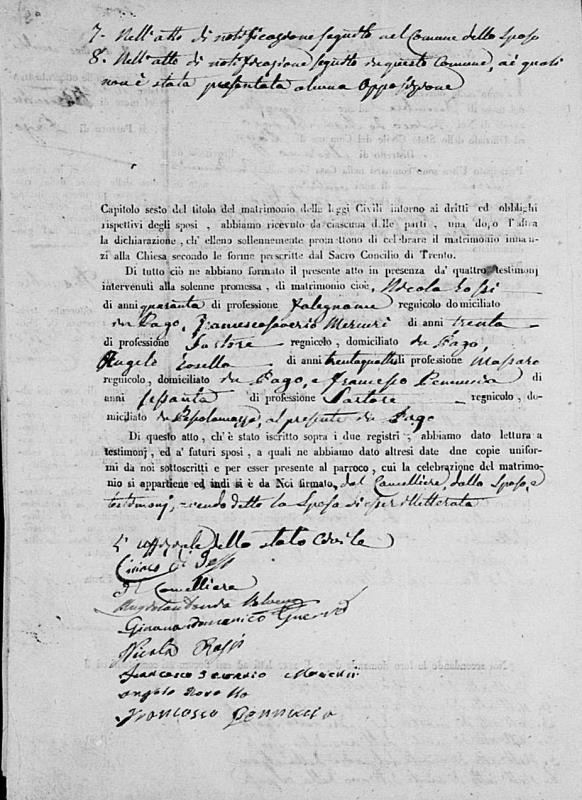 7. Nell'atto di notificazione seguito nel Comune dello Sposo
8. Nell'atto di notificazione seguito in questo Comune, ai quali
non è stata presentata alcuna Opposizione
Capitolo sesto del titolo del matrimonio delle leggi Civili intorno ai dritti ed obblighi
rispettivi degli sposi, abbiamo ricevuto da ciascuna delle parti, una dopo l'altra
la dichiarazione, ch'elleno sollennemente promettono di celebrare il matrimonio innan-
zi alla Chiesa secondo le forme prescritte dal Sacro Concilio di Trento.
Di tutto ciò ne abbiamo formato il presente atto in presenza da' quattro testimonj
intervenuti alla solenne promessa, di matrimonio cioè, Nicola Rossi
di anni quaranta di professione Falegname regnicolo domiciliato
in Pago, Francesco Saverio Mercuri di anni trenta
di professione Sartore regnicolo, domiciliato in Pago,
Angelo Rosella di anni trentaquattro di professione Massaro
regnicolo, domiciliato in Pago, e Francesco Pennuccia di
anni sessanta di professione Sartore regnicolo, do-
miciliato in al presente in Pago
Di questo atto, ch'è stato iscritto sopra i due registri, abbiamo dato lettura a
testimonj, ed a' futuri sposi, a quali ne abbiamo dato altresì date due copie unifor-
mi da noi sottoscritti e per esser presente al parroco, cui la celebrazione del matrimo-
nio si appartiene ed indi si è da Noi firmato, dal Cancelliere, dallo Sposo, e
testimonj, avendo detto la Sposa di esser illetterata
L'uffiziale dello stato Civile
Il Cancelliere
Nicola Rossi
Francesco Saverio Mercuri
Angelo
Francesco Pennuccia